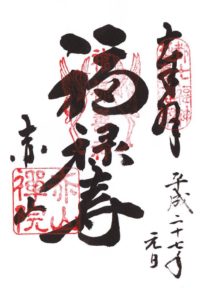 奉拝
平成二十七年
元日
福禄寿
赤山
赤山
禪院